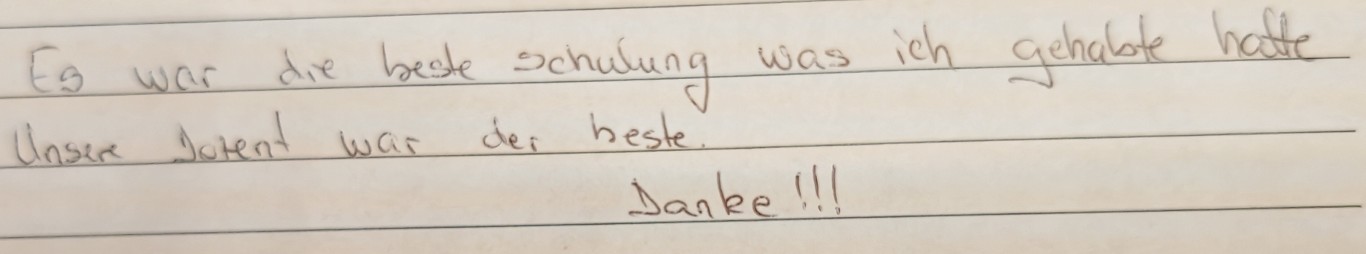 Es war die beste schulung was ich gehabte hatte
Unsere Dozent war der beste.
Danke!!!